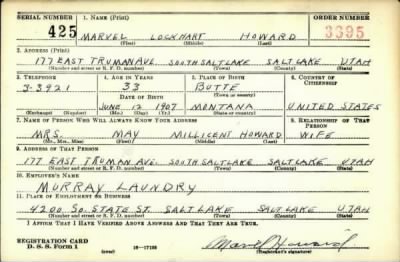 SERIAL NUMBER 1. NAME (Print) ORDER NUMBER
425 MARVEL LOCKHART HOWARD 3395
(First) (Middle) (Last)
2. ADDRESS (Print)
177 EAST TRUMAN AVE. SOUTH SALT LAKE SALT LAKE UTAH
(Number and street or R. F. D. number) (Town) (County) (State)
3. TELEPHONE 4. AGE IN YEARS 5. PLACE OF BIRTH 6. COUNTRY OF CITIZENSHIP
33 BUTTE
DATE OF BIRTH (Town or county)
JUNE 12 1907 MONTANA UNITED STATES
(Exchange) (Number) (Mo.) (Day) (Yr.) (State or country)
7. NAME OF PERSON WHO WILL ALWAYS KNOW YOUR ADDRESS 8. RELATIONSHIP OF THAT PERSON
MRS. MAY MILLICENT HOWARD WIFE
(Mr., Mrs., Miss) (First) (Middle) (Last)
9. ADDRESS OF THAT PERSON
177 EAST TRUMAN AVE. SOUTH SALT LAKE SALT LAKE UTAH
(Number and street or R. F. D. number) (Town) (County) (State)
10. EMPLOYER'S NAME
MURRAY LAUNDRY
11. PLACE OF EMPLOYMENT OR BUSINESS
4200 SO. STATE ST. SALT LAKE SALT LAKE UTAH
(Number and street or R. F. D. number) (Town) (County) (State)
I AFFIRM THAT I HAVE VERIFIED ABOVE ANSWERS AND THAT THEY ARE TRUE.
REGISTRATION CARD
D. S. S. Form 1 (over) 16—17105 Marvel Howard
(Registrant's signature)